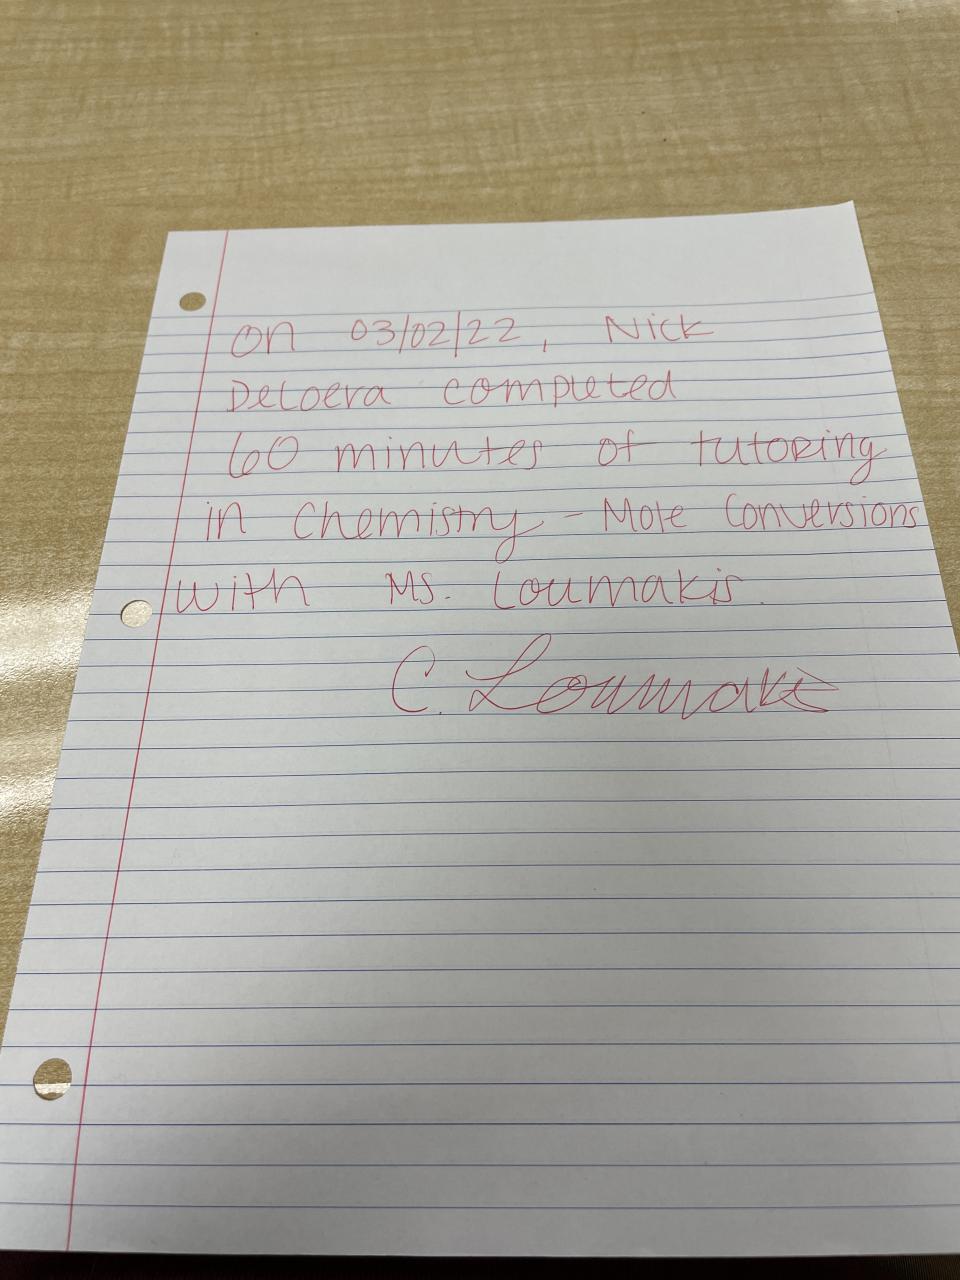 On 03/02/22, Nick
DeLoera completed
60 minutes of tutoring
in Chemistry - Mole Conversions
with Ms. Loumakis.
C. Loumakis